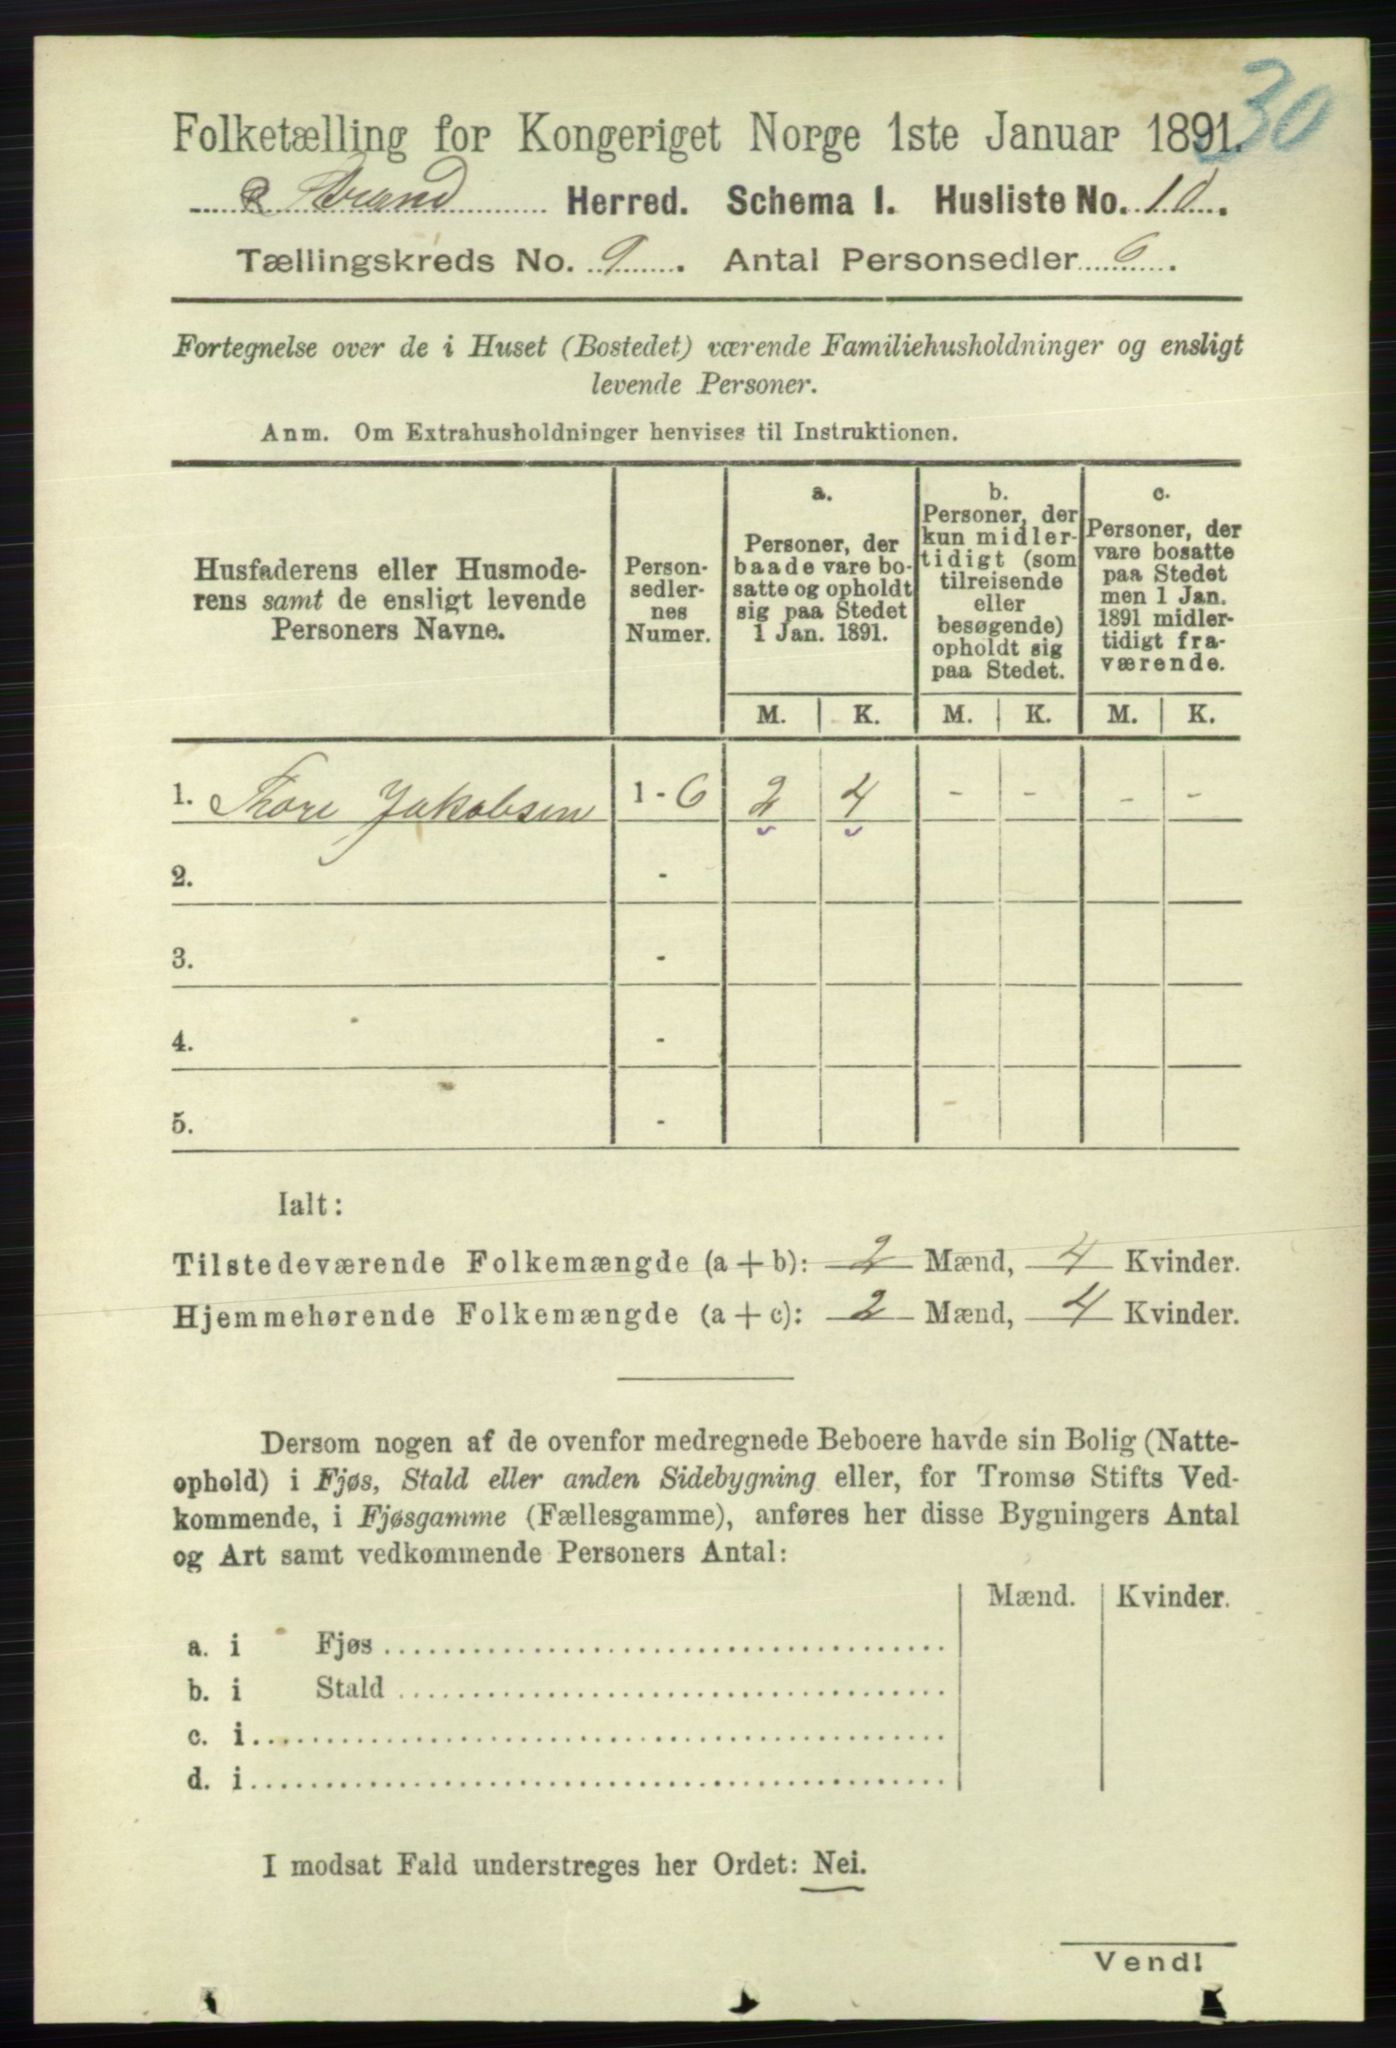 30
Folketælling for Kongeriget Norge 1ste Januar 1891.
Strand Herred. Schema I. Husliste No. 10.
Tællingskreds No. 9. Antal Personsedler 6.
Fortegnelse over de i Huset (Bostedet) værende Familiehusholdninger og ensligt
levende Personer.
Anm. Om Extrahusholdninger henvises til Instruktionen.
Husfaderens eller Husmode-
rens samt de ensligt levende
Personers Navne.
Person-
sedler-
nes
Numer.
a.
Personer, der
baade vare bo-
satte og opholdt
sig paa Stedet
1 Jan. 1891.
b.
Personer, der
kun midler-
tidigt (som
tilreisende
eller
besøgende)
opholdt sig
paa Stedet.
c.
Personer, der
vare bosatte
paa Stedet
men 1 Jan.
1891 midler-
tidigt fra-
værende.
M. K. M. K. M. K.
1. Thore Jakobsen 1 - 6 2 4 - - - -
2. -
3. -
4. -
5. -
Ialt:
Tilstedeværende Folkemængde (a + b): 2 Mænd, 4 Kvinder.
Hjemmehørende Folkemængde (a + c): 2 Mænd, 4 Kvinder.
Dersom nogen af de ovenfor medregnede Beboere havde sin Bolig (Natte-
ophold) i Fjøs, Stald eller anden Sidebygning eller, for Tromsø Stifts Ved-
kommende, i Fjøsgamme (Fællesgamme), anføres her disse Bygningers Antal
og Art samt vedkommende Personers Antal:
Mænd. Kvinder.
a. i Fjøs
b. i Stald
c. i
d. i
I modsat Fald understreges her Ordet: Nei.
Vendl